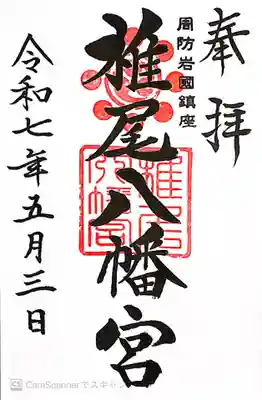 奉拝
周防岩國鎮座
椎尾八幡宮
椎尾八幡宮
令和七年五月三日
CamScannerでスキャン